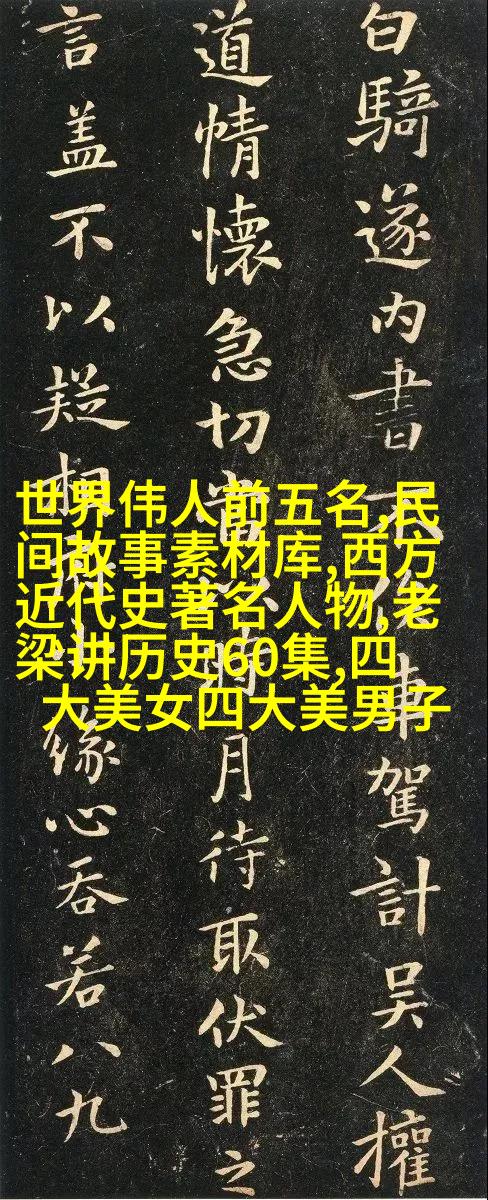 白騎遂内書車駕計吳人權
道情懷急切當時月待取伏罪之
言盖不以疑相緣心吞若八九
世界伟人前五名,民
间故事素材库,西方
近代史著名人物,老
梁讲历史60集,四
大美女四大美男子